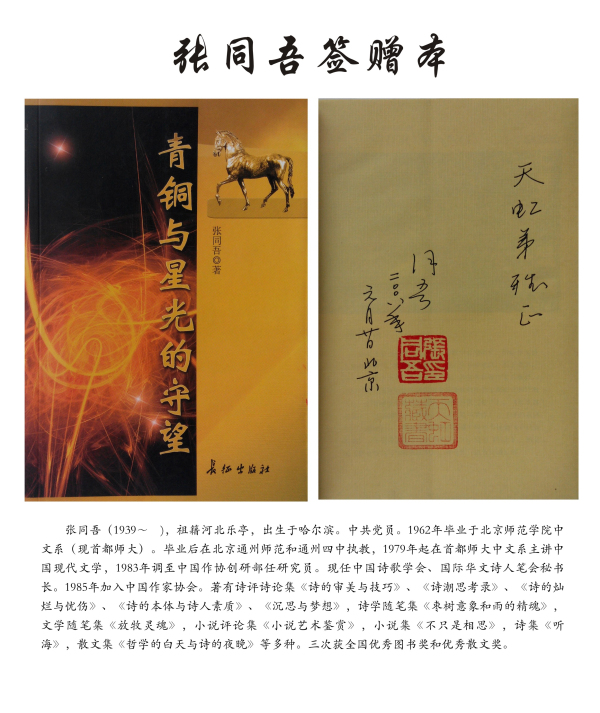 张同吾签赠本
青铜与星光的守望
张同吾◎著
长征出版社
天虹弟雅正
同吾
二〇〇八年
元月廿日北京
張同吾印
天虹藏書
张同吾（1939～　），祖籍河北乐亭，出生于哈尔滨。中共党员。1962年毕业于北京师范学院中
文系（现首都师大）。毕业后在北京通州师范和通州四中执教，1979年起在首都师大中文系主讲中
国现代文学，1983年调至中国作协创研部任研究员。现任中国诗歌学会、国际华文诗人笔会秘书
长。1985年加入中国作家协会。著有诗评诗论集《诗的审美与技巧》、《诗潮思考录》、《诗的灿
烂与忧伤》、《诗的本体与诗人素质》、《沉思与梦想》，诗学随笔集《枣树意象和雨的精魂》，
文学随笔集《放牧灵魂》，小说评论集《小说艺术鉴赏》，小说集《不只是相思》，诗集《听
海》，散文集《哲学的白天与诗的夜晚》等多种。三次获全国优秀图书奖和优秀散文奖。